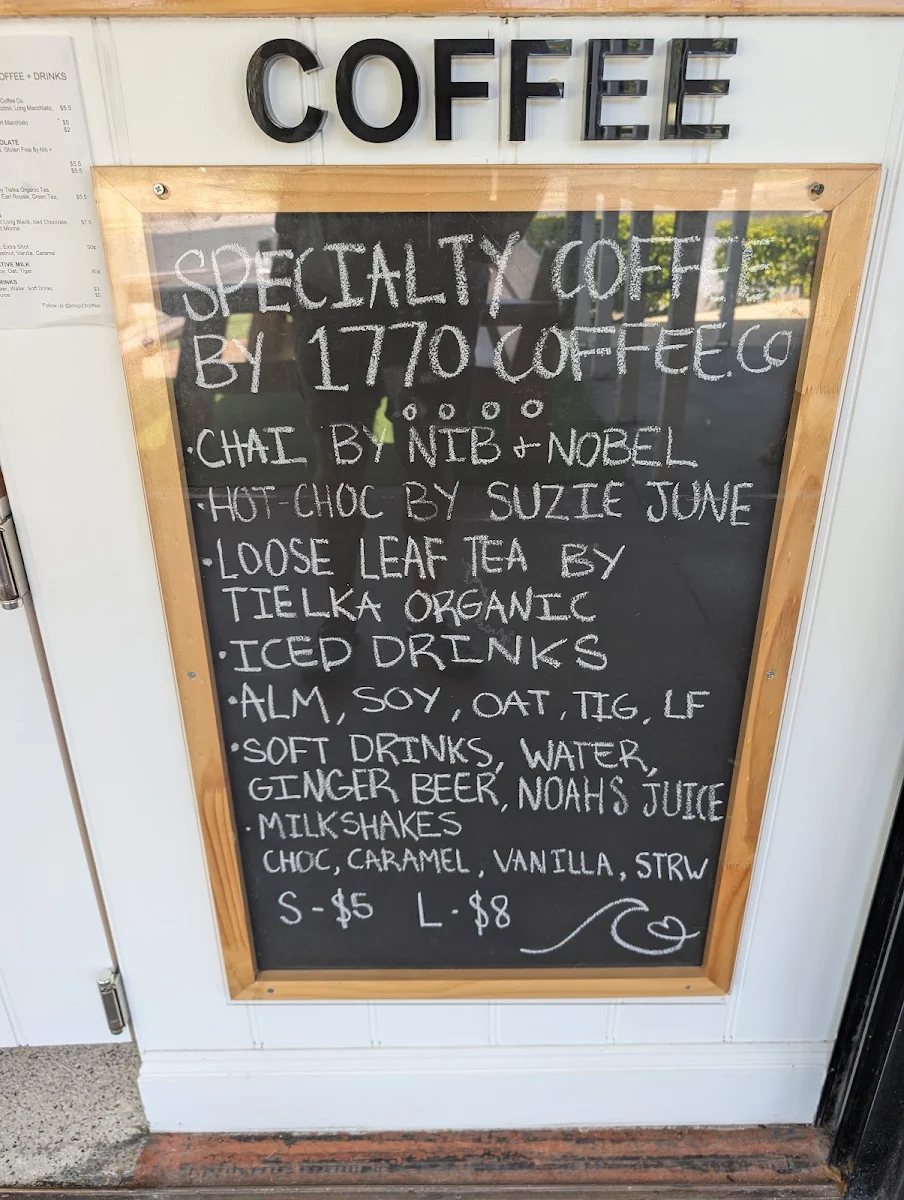 COFFEE
SPECIALTY COFFEE
BY 1770 COFFEE.CO
·CHAI BY NIB + NOBEL
·HOT-CHOC BY SUZIE JUNE
·LOOSE LEAF TEA BY
TIELKA ORGANIC
·ICED DRINKS
·ALM, SOY, OAT, TIG, LF
·SOFT DRINKS, WATER,
GINGER BEER, NOAHS JUICE
·MILKSHAKES
CHOC, CARAMEL, VANILLA, STRW
S-$5 L-$8
OFFEE + DRINKS
Coffee Co.
Long Macchiato, $5.5
Macchiato $5
$2
OLATE
Gluten Free By Nib +
$5.5
$5.5
y Tielka Organic Tea
Earl Royale, Green Tea, $5.5
Long Black, Iced Chocolate, $7.5
d Mocha
Extra Shot 50p
Vanilla, Caramel
TIVE MILK
oy, Oat, Tiger
RINKS
Water, Soft Drinks $3
$5
Follow us